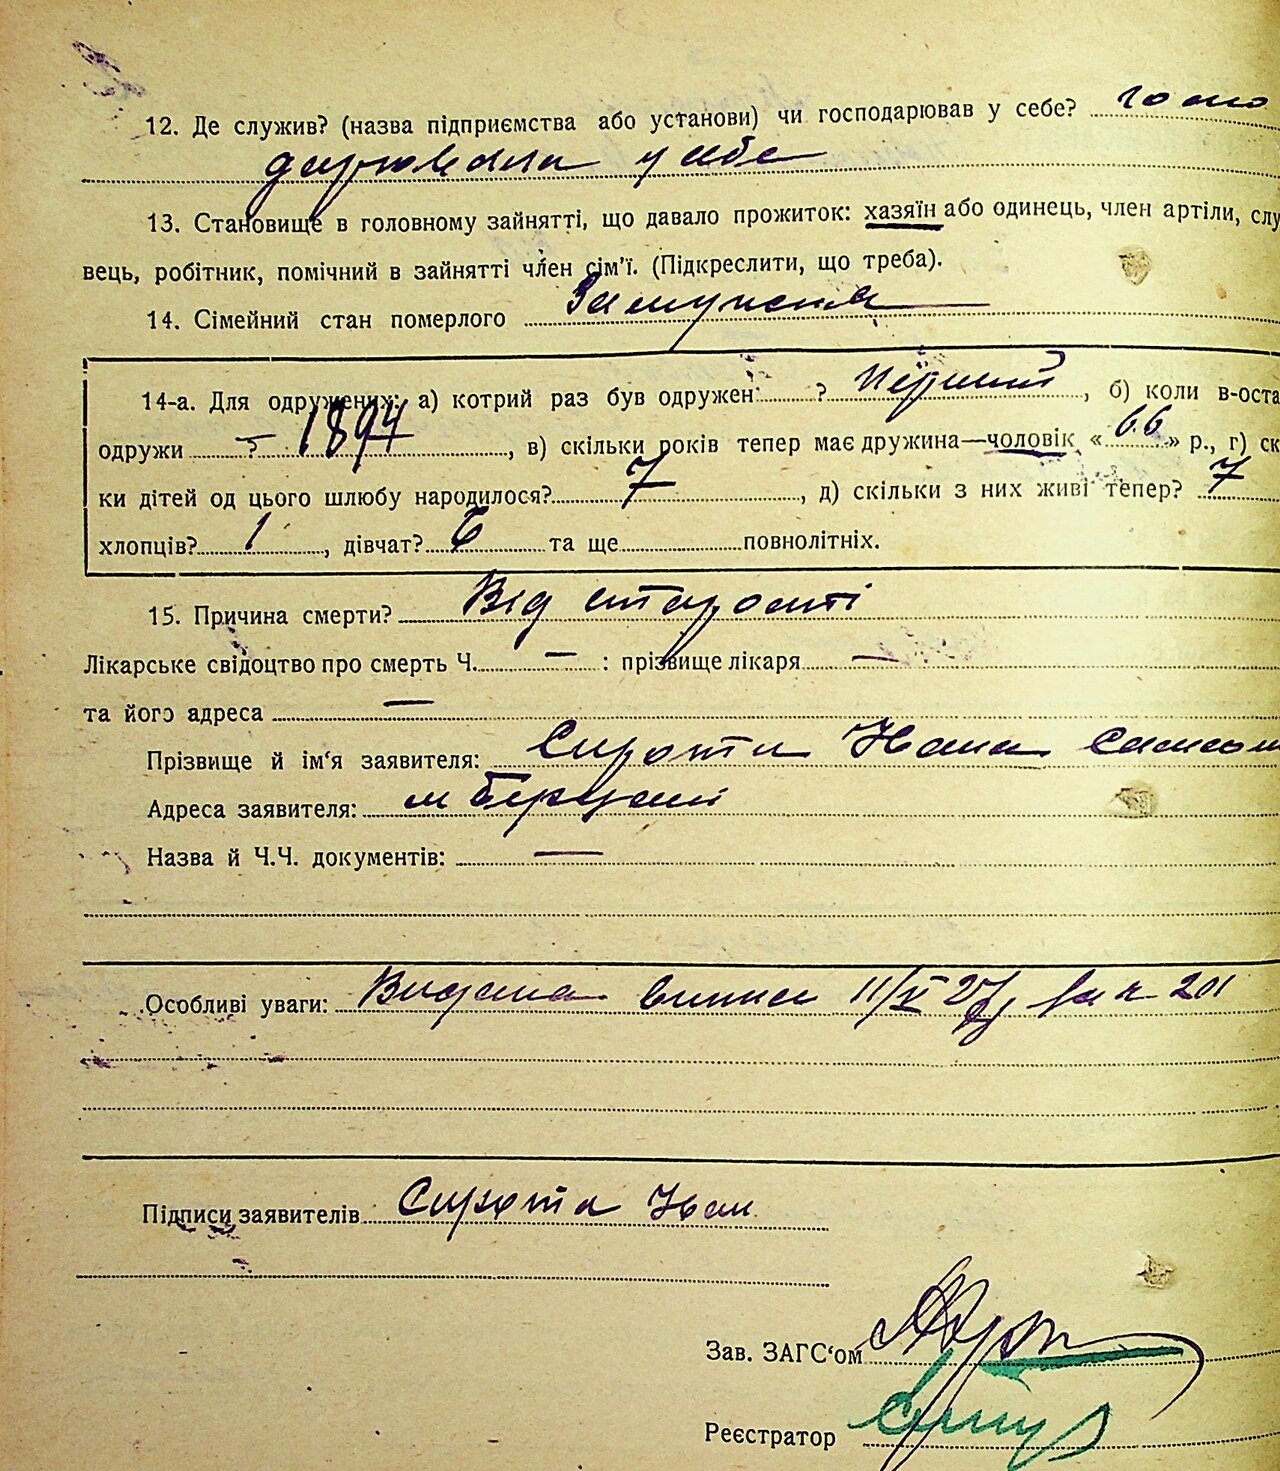 12. Де служив? (назва підприємства або установи) чи господарював у себе? госпо
дарювала у себе
13. Становище в головному зайнятті, що давало прожиток: хазяїн або одинець, член артілі, слу
вець, робітник, помічний в зайнятті член сім'ї. (Підкреслити, що треба).
14. Сімейний стан померлого Замужня
14-а. Для одружених: а) котрий раз був одружен ? Перший, б) коли в-оста
одружи ? 1894, в) скільки років тепер має дружина—чоловік «66» р., г) ск
ки дітей од цього шлюбу народилося? 7, д) скільки з них живі тепер? 7
хлопців? 1, дівчат? 6 та ще повнолітніх.
15. Причина смерти? Від старості
Лікарське свідоцтво про смерть Ч. — : прізвище лікаря —
та його адреса —
Прізвище й ім'я заявителя: Сирота Іван
Адреса заявителя: м
Назва й Ч.Ч. документів: —
Особливі уваги: Видана виписка 11/X 27 201
Підписи заявителів Сирота Іван
Зав. ЗАГС'ом
Реєстратор